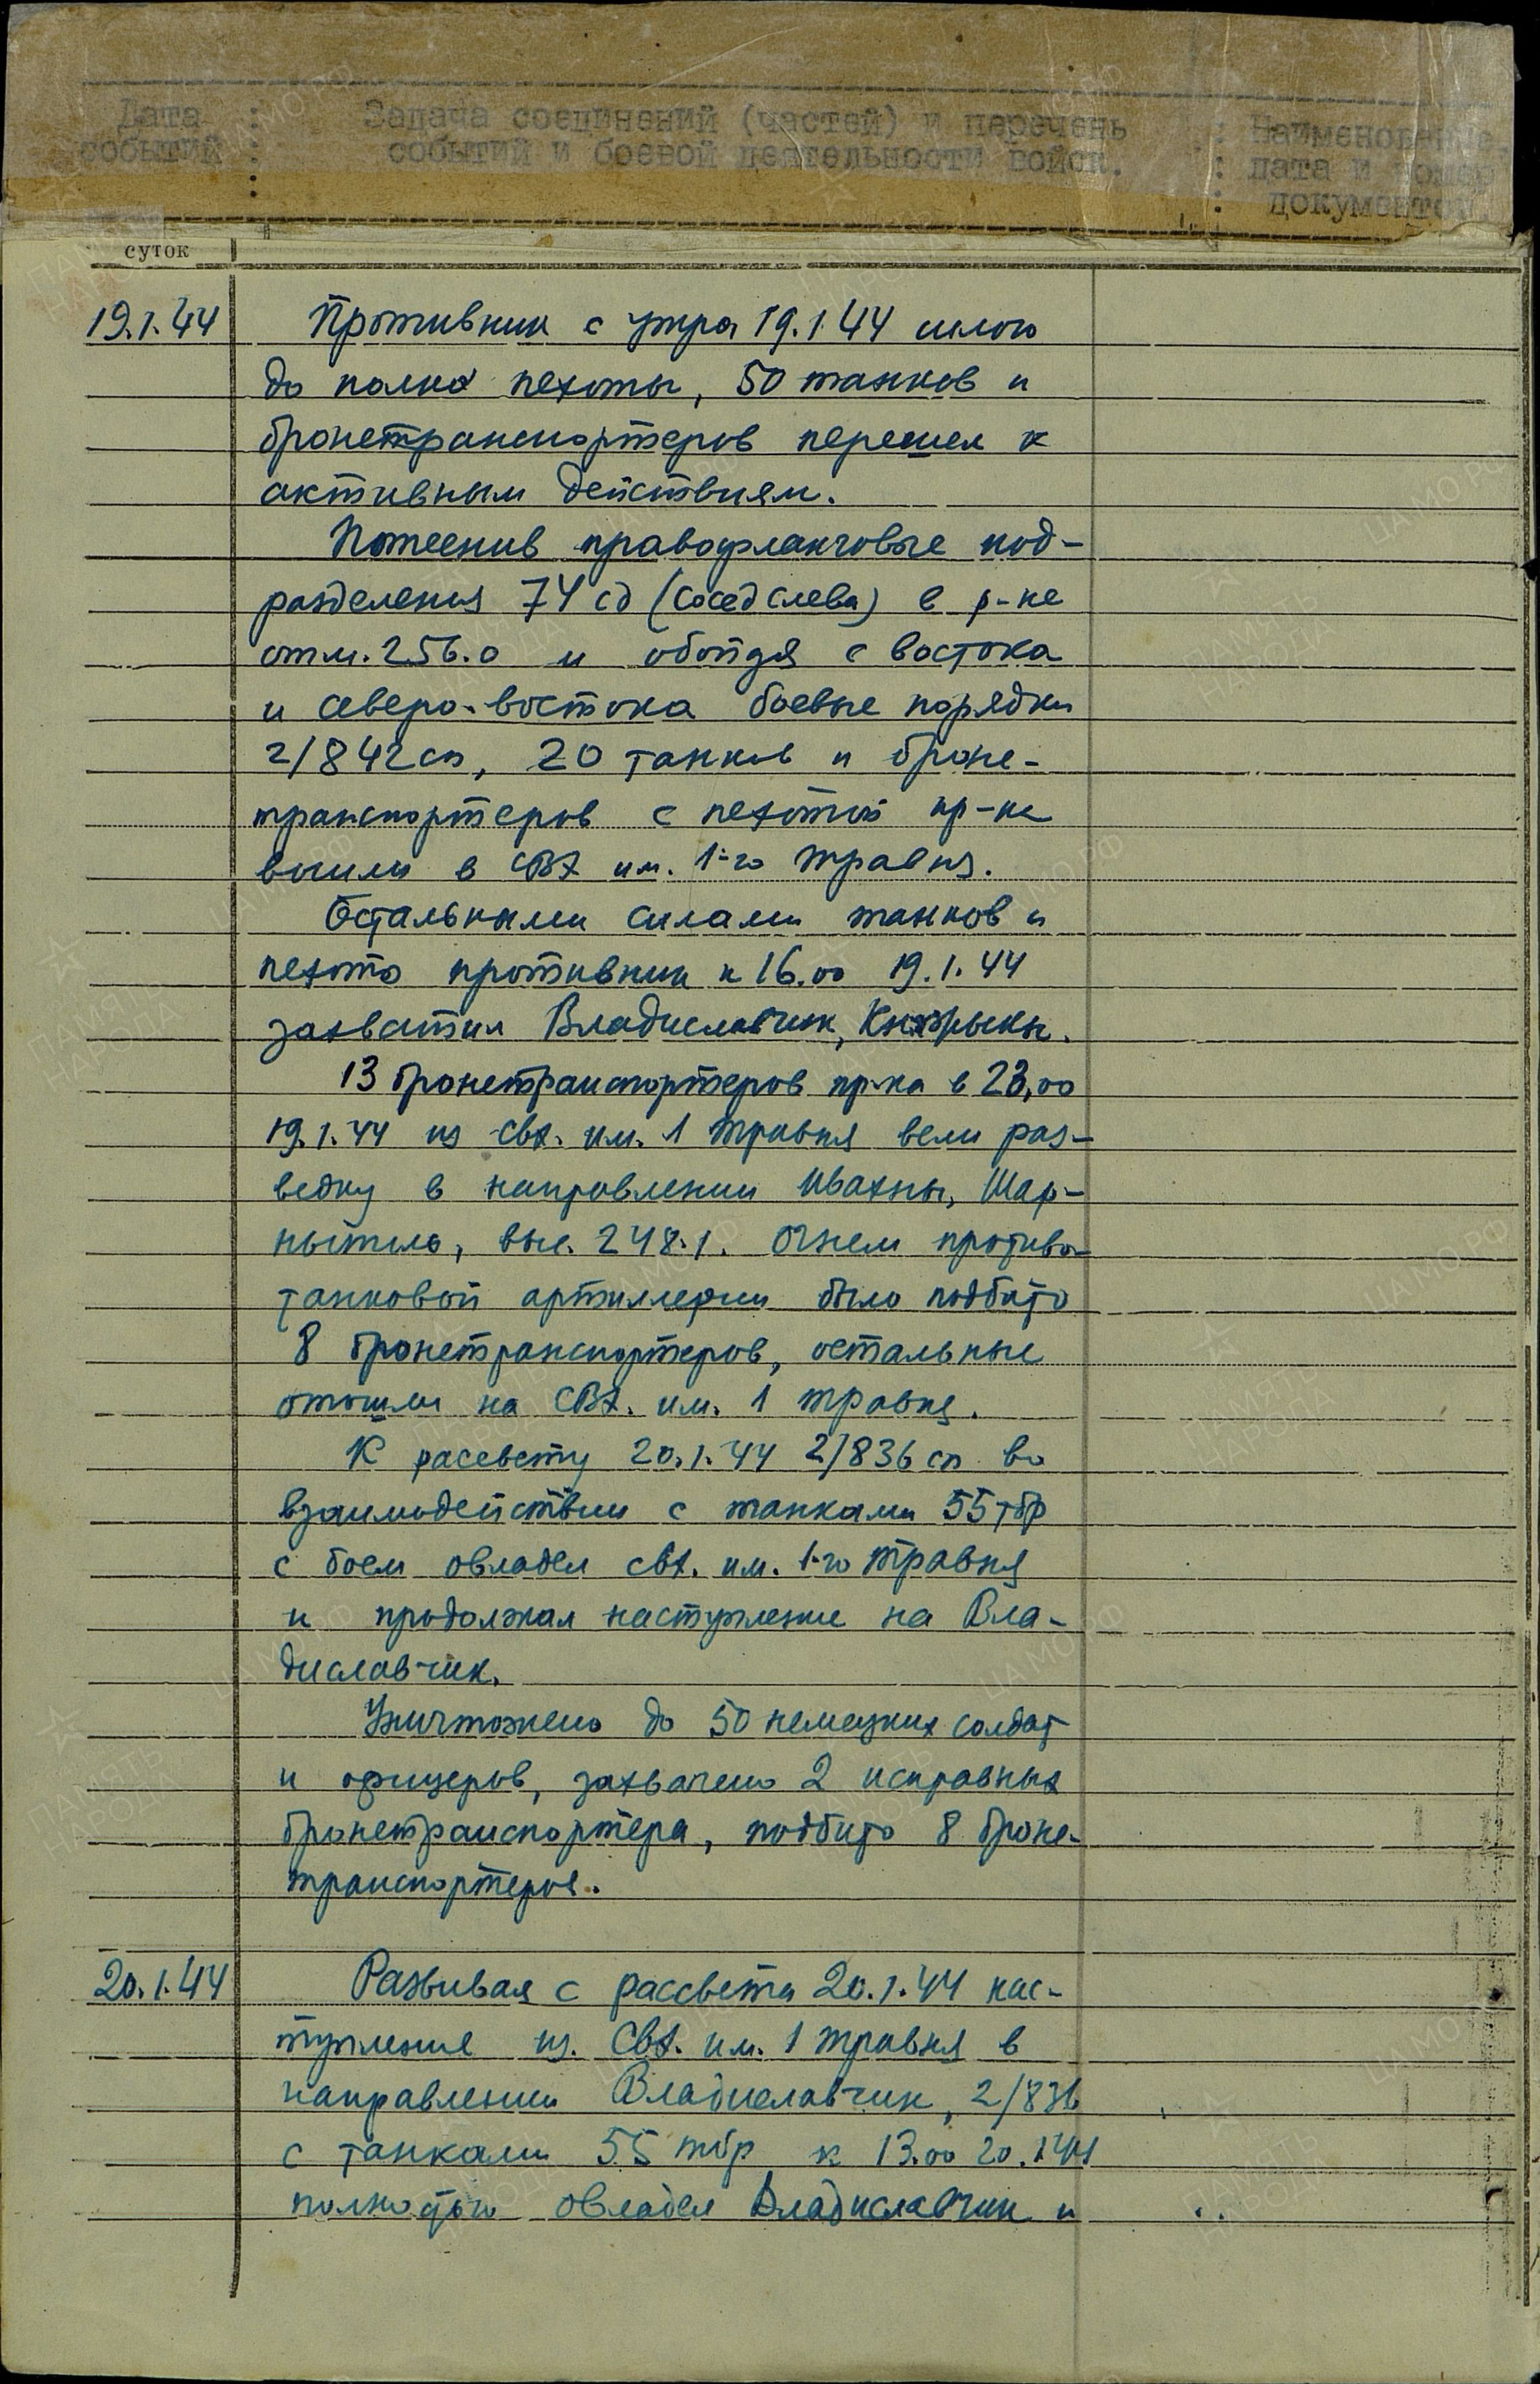 Дата событий : Задача соединений (частей) и перечень событий и боевой деятельности войск. : Наименование, дата и номер документов.
суток
19.1.44 Противник с утра 19.1.44 силою
до полка пехоты, 50 танков и
бронетранспортеров перешел к
активным действиям.
Потеснив правофланговые под-
разделения 74 сд (сосед слева) в р-не
отм. 256.0 и обойдя с востока
и северо-востока боевые порядки
2/842 сп, 20 танков и броне-
транспортеров с пехотой пр-ка
вышли в СВХ им. 1-го травня.
Остальными силами танков и
пехота противник к 16.00 19.1.44
захватил Владиславчик,
13 бронетранспортеров пр-ка в 23,00
19.1.44 из свх. им. 1 травня вели раз-
ведку в направлении Ивахны, Шар-
ныпиль, выс. 248.1. Огнем противо-
танковой артиллерии было подбито
8 бронетранспортеров, остальные
отошли на СВХ. им. 1 травня.
К рассвету 20.1.44 2/836 сп во
взаимодействии с танками 55 тбр
с боем овладел свх. им. 1-го травня
и продолжал наступление на Вла-
диславчик.
Уничтожено до 50 немецких солдат
и офицеров, захвачено 2 исправных
бронетранспортера, подбито 8 броне-
транспортеров.
20.1.44 Развивая с рассвета 20.1.44 нас-
тупление из. Свх. им. 1 травня в
направлении Владиславчик, 2/836
с танками 55 тбр к 13.00 20.1.44
полностью овладел Владиславчик и